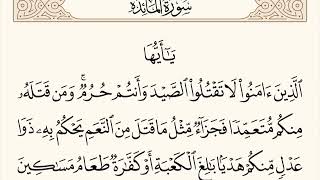 سورة المائدة
يَٰٓأَيُّهَا
ٱلَّذِينَ ءَامَنُوا۟ لَا تَقْتُلُوا۟ ٱلصَّيْدَ وَأَنتُمْ حُرُمٌۭ ۚ وَمَن قَتَلَهُۥ
مِنكُم مُّتَعَمِّدًۭا فَجَزَآءٌۭ مِّثْلُ مَا قَتَلَ مِنَ ٱلنَّعَمِ يَحْكُمُ بِهِۦ ذَوَا
عَدْلٍۢ مِّنكُمْ هَدْيًۢا بَٰلِغَ ٱلْكَعْبَةِ أَوْ كَفَّٰرَةٌۭ طَعَامُ مَسَٰكِينَ